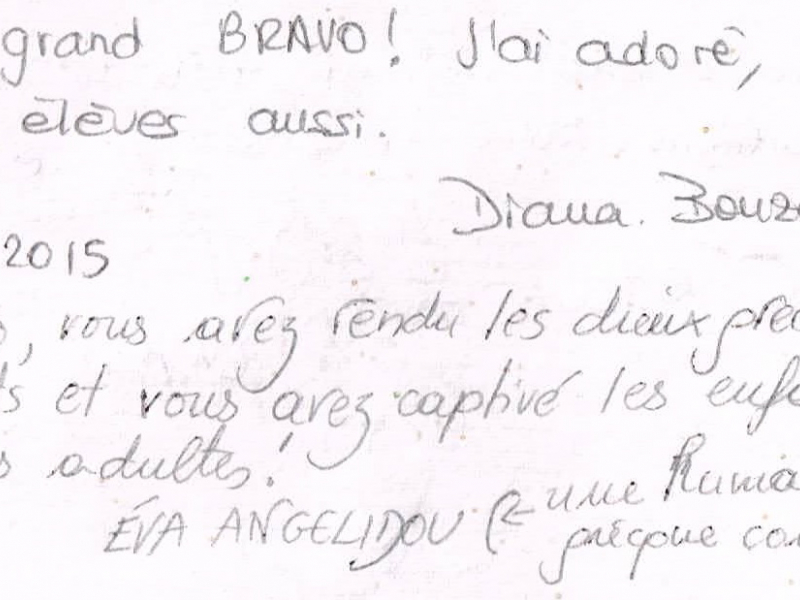 grand BRAVO! J'ai adoré,
élèves aussi.
Diana. Bouz
2015
s, vous avez rendu les dieux préc
ts et vous avez captivé les enfa
s adultes!
ÉVA ANGELIDOU (← une Rumá
préçoue con